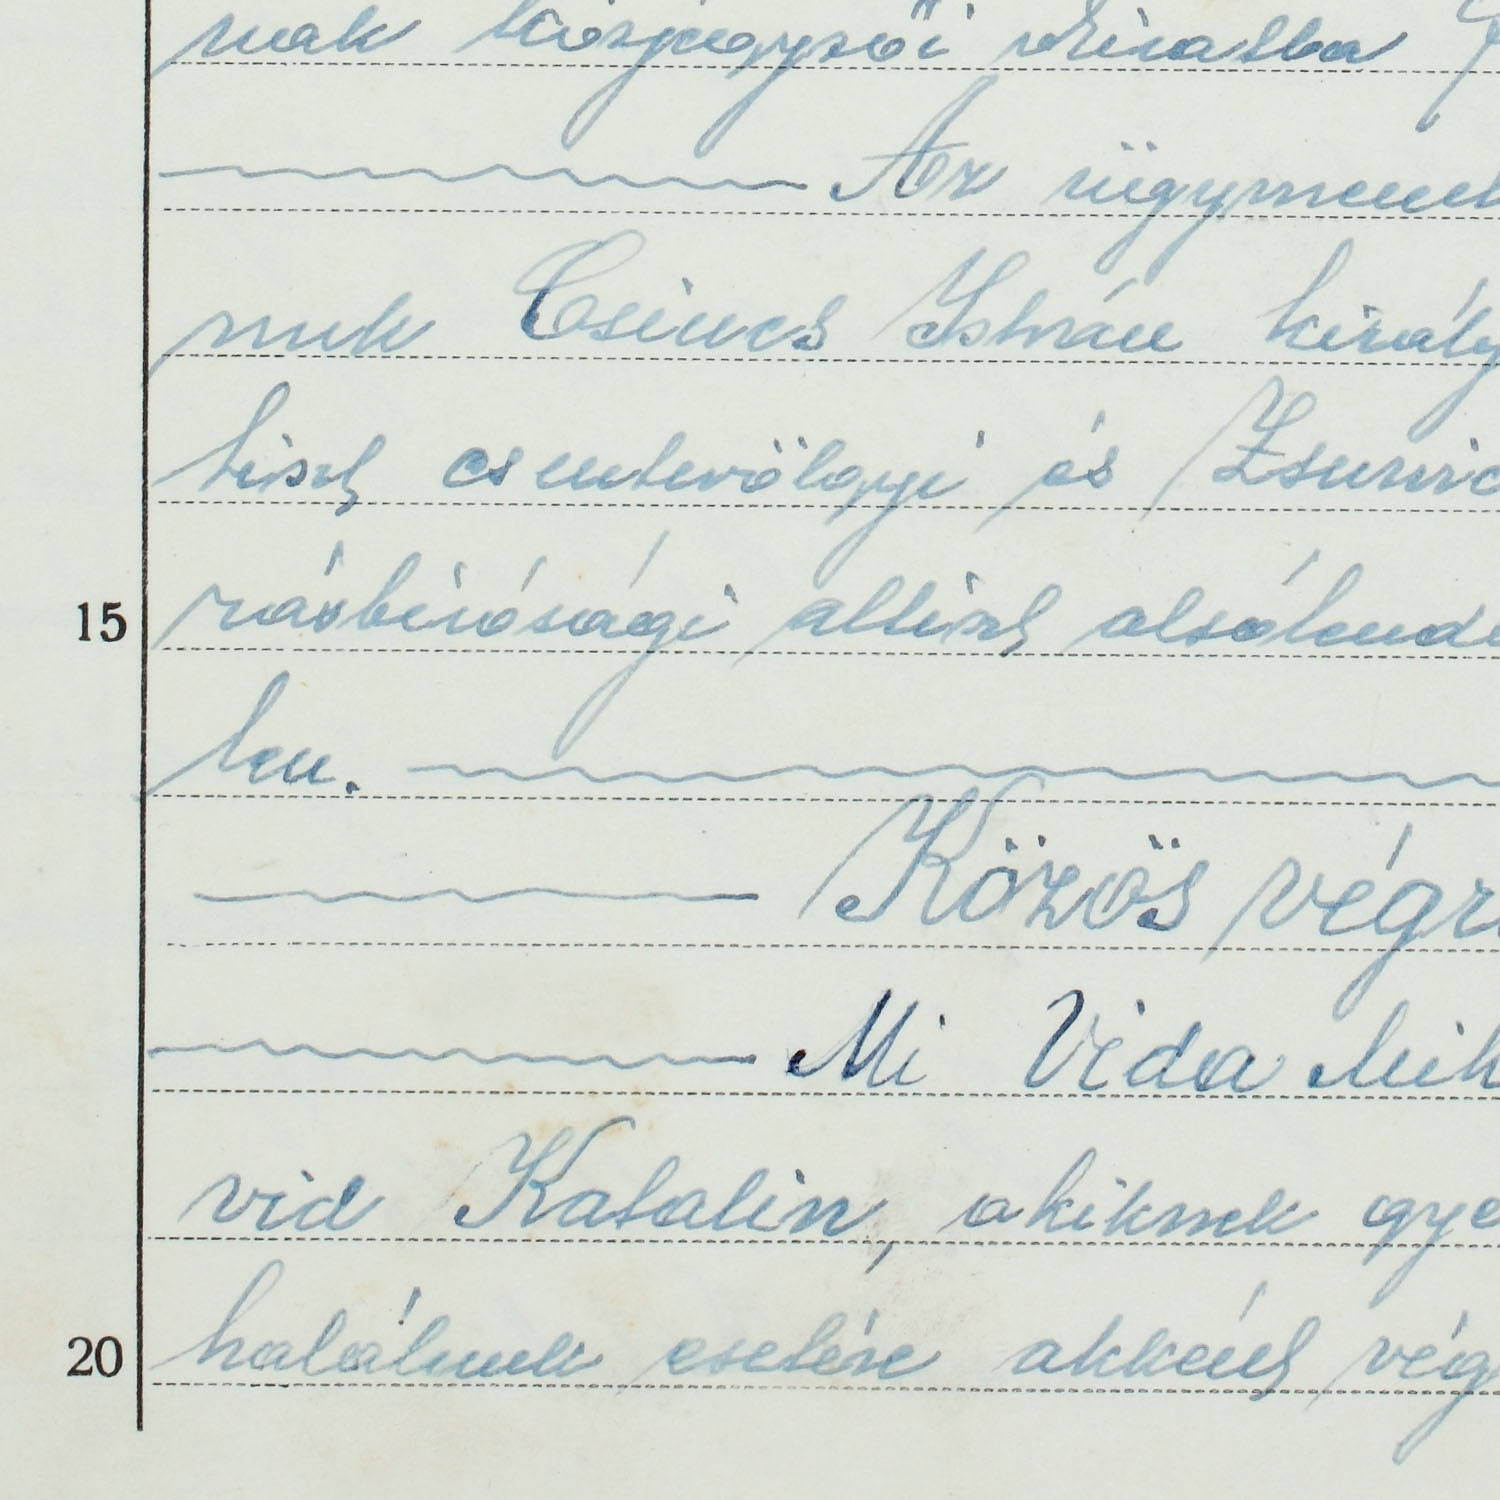 nak közjegyzői okiratba
Az ügymenet
nuk Csincs István király
tiszt csentevölgyi és
rásbirósági altiszt alsólend
len.
Közös végr
Mi Vida Mik
vid Katalin, akiknek gye
halálunk esetére akként vég
15
20